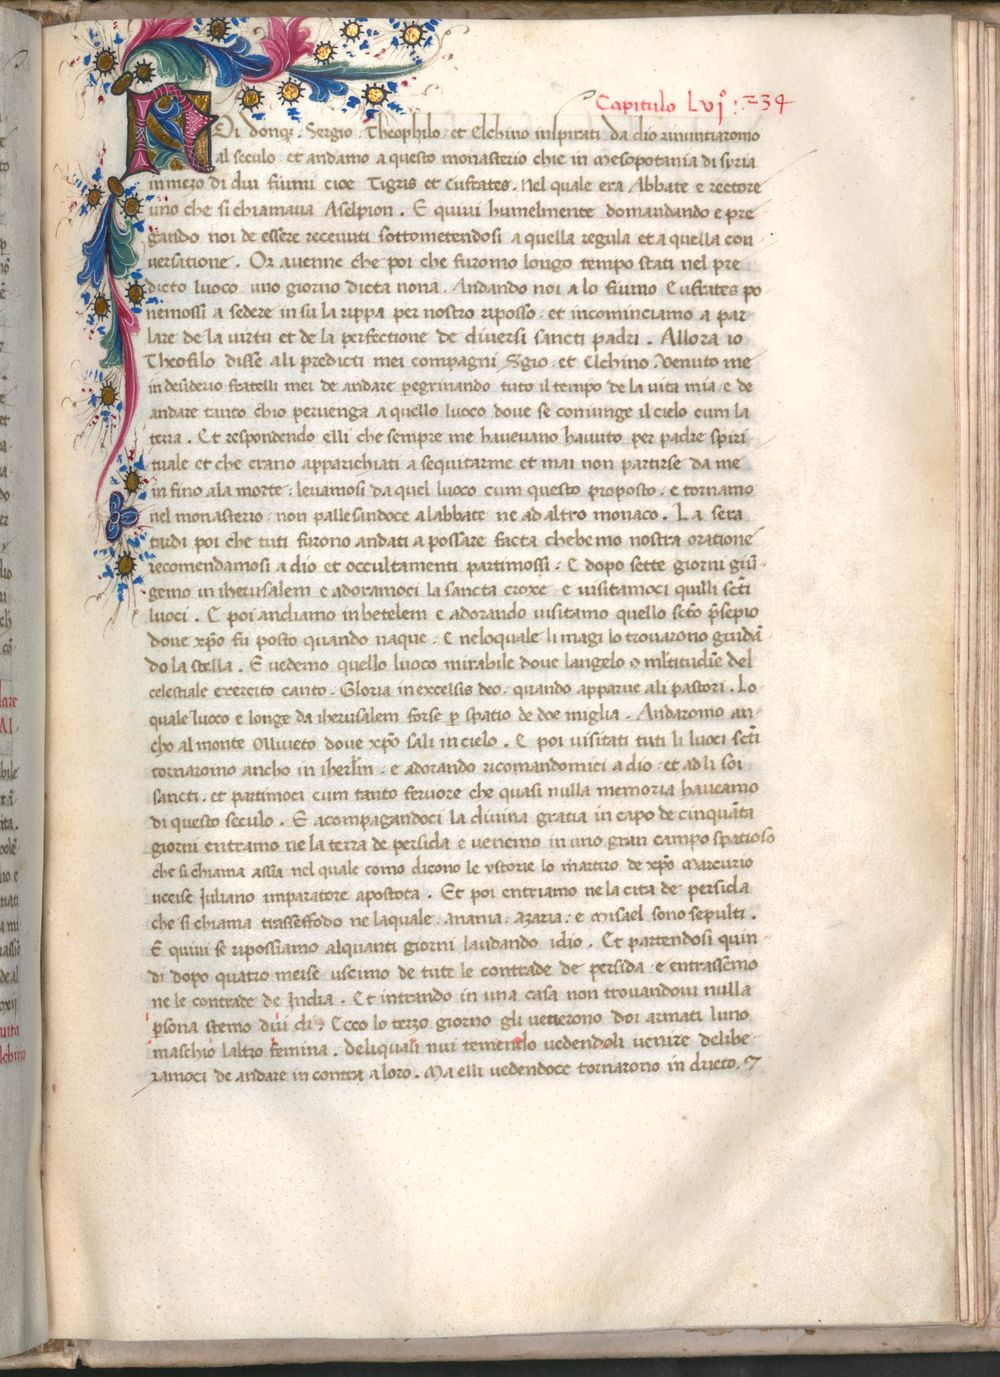 Capitulo Lvjº: 234
NOi donqꝫ. Sergio. Theophilo. et Elchino inspirati da dio rinuntiaromo
al seculo. et andamo a questo monasterio chie in Mesopotania di syria
in mezo di dui fiumi cioe Tigris et Eufrates. Nel quale era Abbate e rectore
uno che si chiamaua Aselpion. E quiui humelmente domandando e pre
gando noi de essere receuuti sottometendosi a quella regula et a quella con
uersatione. Or auenne che poi che furomo longo tempo stati nel pre
dicto luoco. uno giorno dicta nona. Andando noi a lo fiumo Eufrates po
nemossi a sedere in su la rippa per nostro riposso. et incominciamo a par
lare de la uirtu et de la perfectione de diuersi sancti padri. Allora io
Theofilo disse ali predicti mei compagni Sgio et Elchino. Venuto me
in desiderio fratelli mei de andare pegrinando tuto il tempo de la vita mia. e de
andare tanto chio peruenga a quello luoco doue se coniunge il cielo cum la
terra. Et respondendo elli che sempre me haueuano hauuto per padre spiri
tuale et che erano apparichiati a sequitarme et mai non partirse da me
in fino ala morte. leuamosi da quel luoco cum questo proposto. e tornamo
nel monasterio. non pallesandoce alabbate ne ad altro monaco. La sera
tardi poi che tuti furono andati a possare facta chebemo nostra oratione
recomendamosi a dio et occultamenti partimossi. E dopo sette giorni giū
gemo in iherusalem e adoramoci la sancta croxe. e visitamoci quilli scti
luoci. E poi andiamo in betelem e adorando visitamo quello scto psepio
doue xpo fu posto quando naque. E neloquale li magi lo trouarono guidā
do la stella. E uedemo quello luoco mirabile doue langelo ꝯ mltitudie del
celestiale exercito canto. Gloria in excelsis deo. quando apparue ali pastori. Lo
quale luoco e longe da iherusalem forse p spatio de doe miglia. Andaromo an
cho al monte Olliueto doue xpo sali in cielo. E poi uisitati tuti li luoci scti
tornaromo ancho in iherlm. e adorando ricomandomici a dio. et ad li soi
sancti. et partimoci cum tanto feruore che quasi nulla memoria haueamo
di questo seculo. E acompagandoci la diuina gratia in capo de cinquāta
giorni entramo ne la terra de persida e uenemo in uno gran campo spatioso
che si chiama assia nel quale como dicono le ystorie lo martiro de xpo Marcurio
uccise Juliano imparatore apostota. Et poi entriamo ne la cita de persida
che si chiama trasseffodo ne laquale. Anania. azaria. e misael sono sepulti.
E quiui se ripossiamo alquanti giorni laudando idio. Et partendosi quin
di dopo quatro meise uscimo de tute le contrade de persida. e entrassemo
ne le contrade de India. Et intrando in una casa non trouandoui nulla
psona stemo dui di. Ecco lo terzo giorno gli uenerono doi armati luno
maschio laltro femina. deliquali nui temendo uedendoli uenire delibe
ramoci de andare in contra a loro. Ma elli uedendoce tornarono in drieto. ⁊